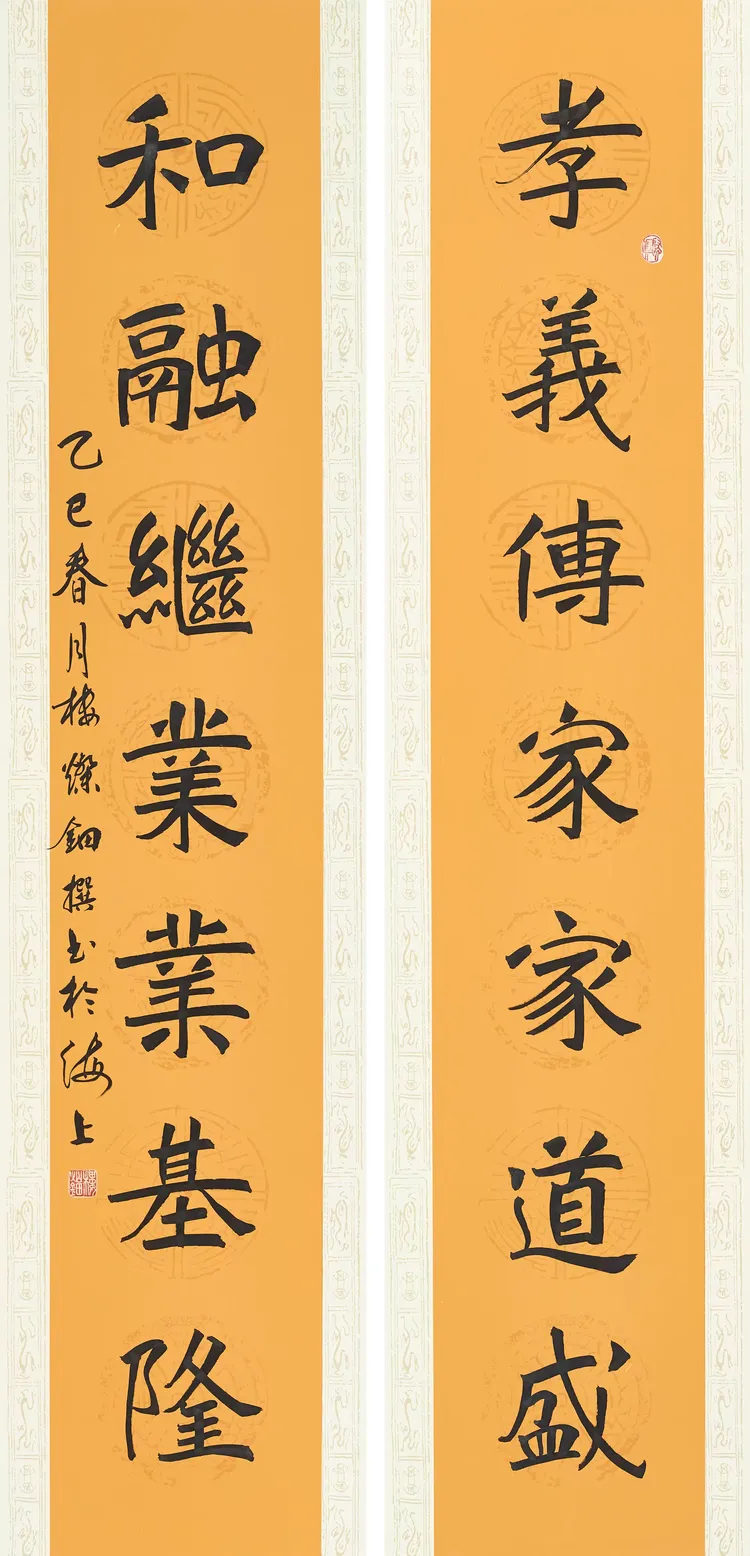 孝義傳家家道盛
和融繼業業基隆
乙巳春月樓燦鈿撰书於海上